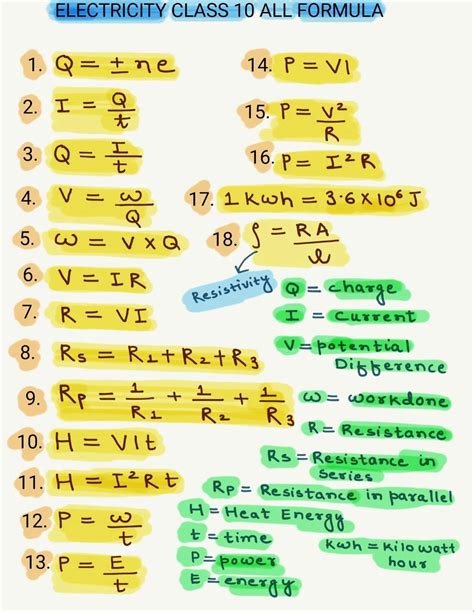 ELECTRICITY CLASS 10 ALL FORMULA
1. Q = ± n e
2. I = Q/t
3. Q = I/t
4. V = ω/Q
5. ω = V × Q
6. V = I R
7. R = V I
8. Rs = R1 + R2 + R3
9. Rp = 1/R1 + 1/R2 + 1/R3
10. H = V I t
11. H = I² R t
12. P = ω/t
13. P = E/t
14. P = V I
15. P = V²/R
16. P = I² R
17. 1 Kwh = 3.6 × 10⁶ J
18. ρ = RA/l
Resistivity
Q = charge
I = current
V = potential
Difference
ω = workdone
R = Resistance
Rs = Resistance in
series
Rp = Resistance in parallel
H = Heat Energy
t = time
P = power
E = energy
Kwh = Kilo watt
hour